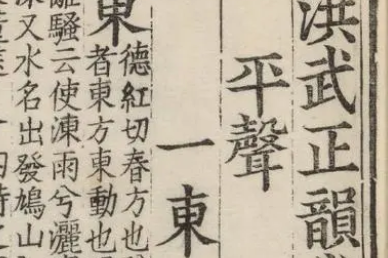 洪武正韻
平聲
一東
東
德紅切春方也
者東方東動也
離騷云使涷雨兮灑
又水名出發鳩山